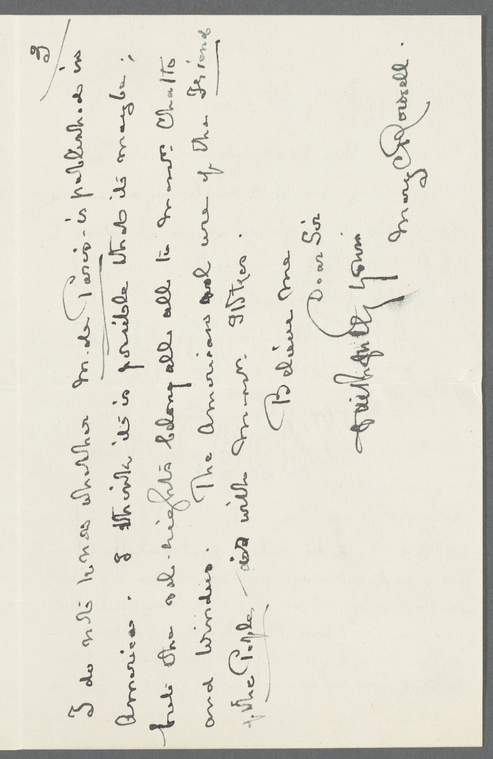 3
I do not know whether M. de Paris - is published in
America. I think it is possible that it may be;
but the sole-rights belong all all to Messrs. Chatto
and Windus. The American sole use of the Friend
of the People is with Messrs.
Believe me
Dear Sir
faithfully yours
Mary C. Rowsell.